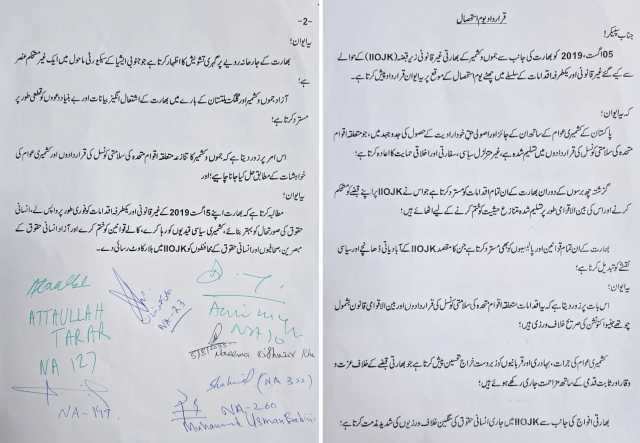 قرارداد یوم استحصال
جناب سپیکر!
05 اگست، 2019 کو بھارت کی جانب سے جموں و کشمیر کے بھارتی غیر قانونی زیر قبضہ (IIOJK) کے حوالے
سے کیے گئے غیر قانونی اور یکطرفہ اقدامات کے سلسلے میں چھٹے یوم استحصال کے موقع پر یہ ایوان قرارداد پیش کرتا ہے۔
کہ یہ ایوان؛
پاکستان کے کشمیری عوام کے ساتھ ان کے جائز اور اصولی حق خود ارادیت کے حصول کی جدوجہد میں، جو متعلقہ اقوام
متحدہ کی سلامتی کونسل کی قراردادوں میں تسلیم شدہ ہے، غیر متزلزل سیاسی، سفارتی اور اخلاقی حمایت کا اعادہ کرتا ہے؛
گزشتہ چھ برسوں کے دوران بھارت کے ان تمام اقدامات کو مسترد کرتا ہے جو اس نے IIOJK پر اپنے قبضے کو مستحکم
کرنے اور اس کی بین الاقوامی طور پر تسلیم شدہ متنازع حیثیت کو ختم کرنے کے لیے اٹھائے ہیں؛
بھارت کے ان تمام قوانین اور پالیسیوں کو بھی مسترد کرتا ہے جن کا مقصد IIOJK کے آبادیاتی ڈھانچے اور سیاسی
نقشے کو تبدیل کرنا ہے؛
یہ ایوان؛
اس بات پر زور دیتا ہے کہ یہ اقدامات متعلقہ اقوام متحدہ کی سلامتی کونسل کی قراردادوں اور بین الاقوامی قانون بشمول
چوتھے جنیوا کنونشن کی صریح خلاف ورزی ہیں؛
کشمیری عوام کی جرات، بہادری اور قربانیوں کو زبردست خراج تحسین پیش کرتا ہے جو بھارتی قبضے کے خلاف عزت و
وقار اور ثابت قدمی کے ساتھ مزاحمت جاری رکھے ہوئے ہیں؛
بھارتی افواج کی جانب سے IIOJK میں جاری انسانی حقوق کی سنگین خلاف ورزیوں کی شدید مذمت کرتا ہے؛
-2-
یہ ایوان؛
بھارت کے جارحانہ رویے پر گہری تشویش کا اظہار کرتا ہے جو جنوبی ایشیا کے سیکیورٹی ماحول میں ایک غیر مستحکم عنصر
ہے؛
آزاد جموں و کشمیر اور گلگت بلتستان کے بارے میں بھارت کے اشتعال انگیز بیانات اور بے بنیاد دعووں کو قطعی طور پر
مسترد کرتا ہے؛
اس امر پر زور دیتا ہے کہ جموں و کشمیر کا تنازعہ متعلقہ اقوام متحدہ کی سلامتی کونسل کی قراردادوں اور کشمیری عوام کی
خواہشات کے مطابق حل کیا جانا چاہیے؛ اور
یہ ایوان؛
مطالبہ کرتا ہے کہ بھارت اپنے 5 اگست 2019 کے غیر قانونی اور یکطرفہ اقدامات کو فوری طور پر واپس لے، انسانی
حقوق کی صورتحال کو بہتر بنائے، کشمیری سیاسی قیدیوں کو رہا کرے، کالے قوانین کو ختم کرے اور آزاد انسانی حقوق کے
مبصرین، صحافیوں اور انسانی حقوق کے محافظوں کو IIOJK میں بلا رکاوٹ رسائی دے۔
ATTAULLAH
TARAR
NA 127
NA-23
Shahid (NA 300)
NA-260
Muhammad Usman Badini